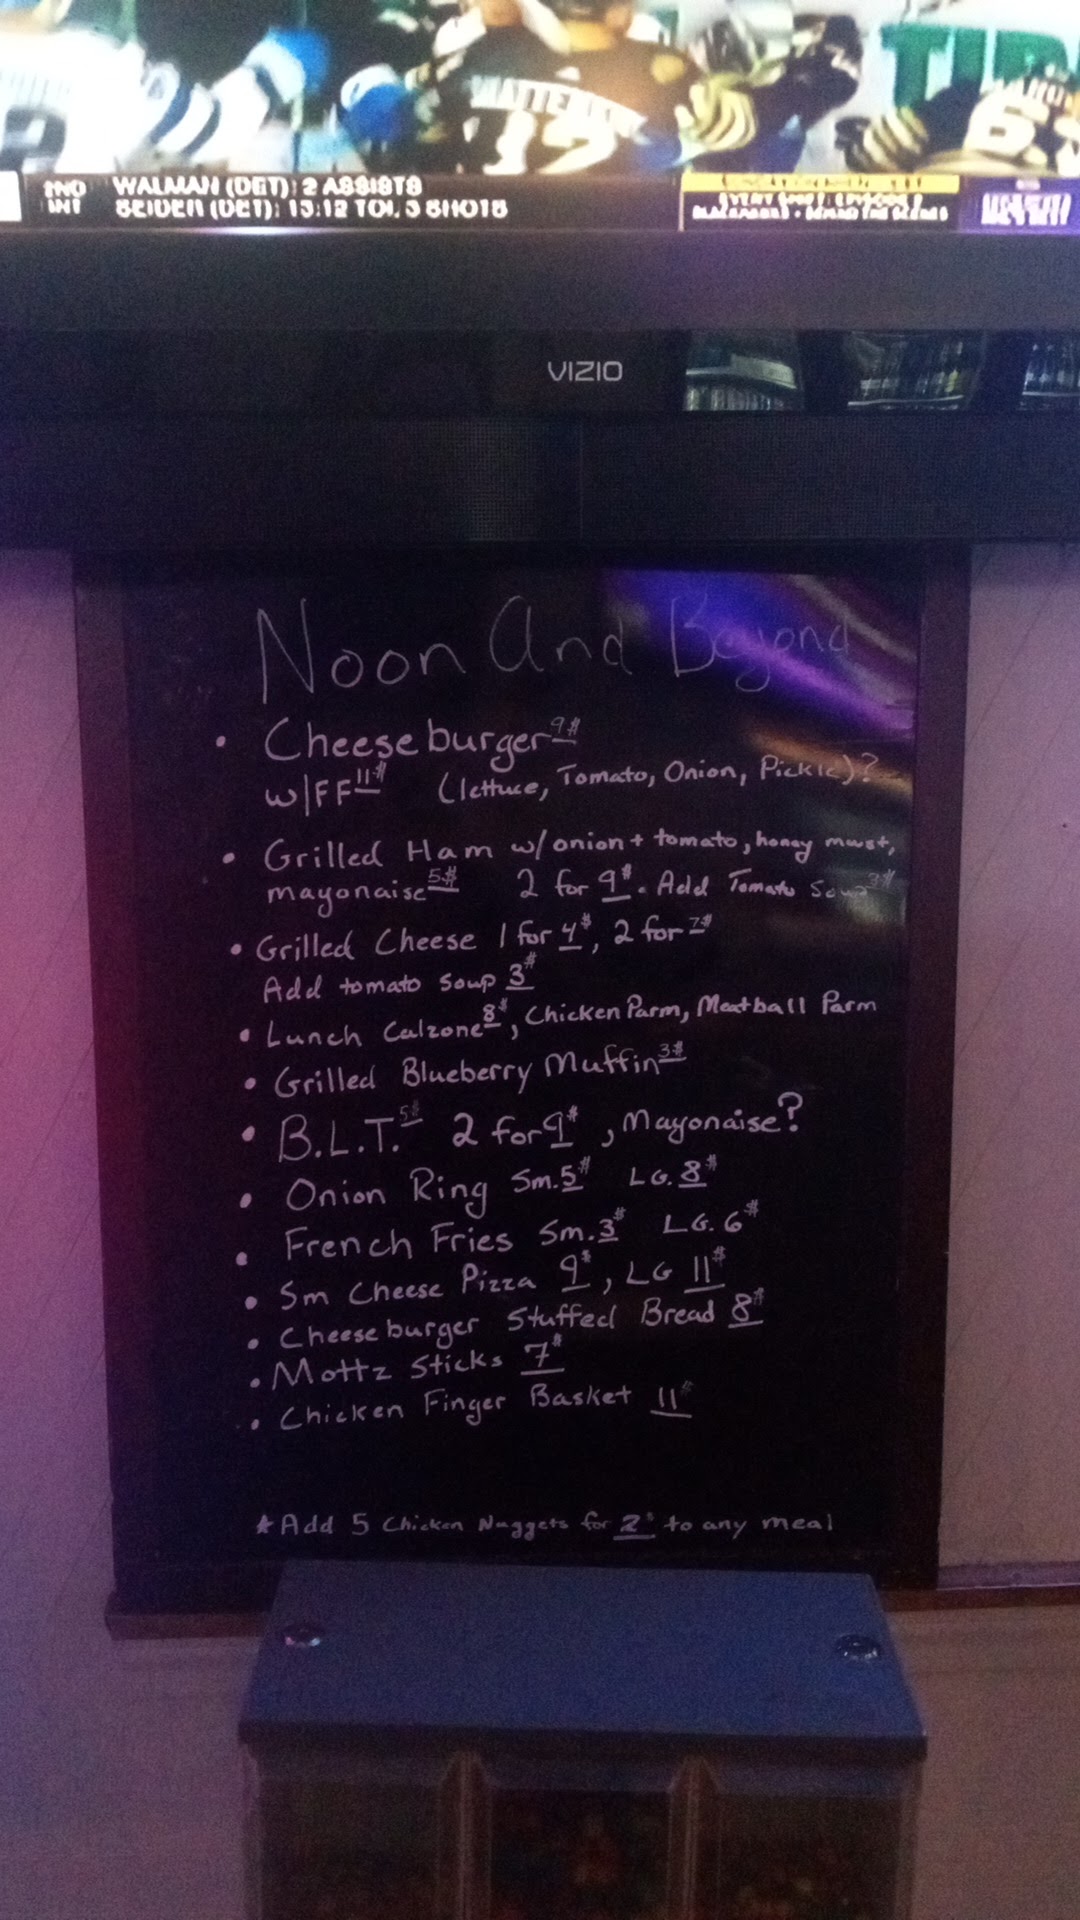 2ND INT
WALMAN (DET): 2 ASSISTS
SEIDER (DET): 13:12 TOI, 3 SHOTS
VIZIO
Noon And Beyond
• Cheeseburger 9$
w/FF 11$ (lettuce, Tomato, Onion, Pickle)?
• Grilled Ham w/onion + tomato, honey must,
mayonaise 5$ 2 for 9$. Add Tomato Soup 3$
• Grilled Cheese 1 for 4$, 2 for 7$
Add tomato soup 3$
• Lunch Calzone 8$, Chicken Parm, Meatball Parm
• Grilled Blueberry Muffin 3$
• B.L.T. 5$ 2 for 9$, Mayonaise?
• Onion Ring Sm. 5$ LG. 8$
• French Fries Sm. 3$ LG. 6$
• Sm Cheese Pizza 9$, LG 11$
• Cheeseburger Stuffed Bread 8$
• Mottz Sticks 7$
• Chicken Finger Basket 11$
* Add 5 Chicken Nuggets for 2$ to any meal